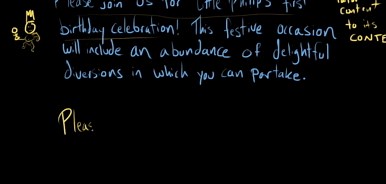 Please join us for Little Philip's first
birthday celebration! This festive occasion
will include an abundance of delightful
diversions in which you can partake.
Pleas
content
to its
CONTE